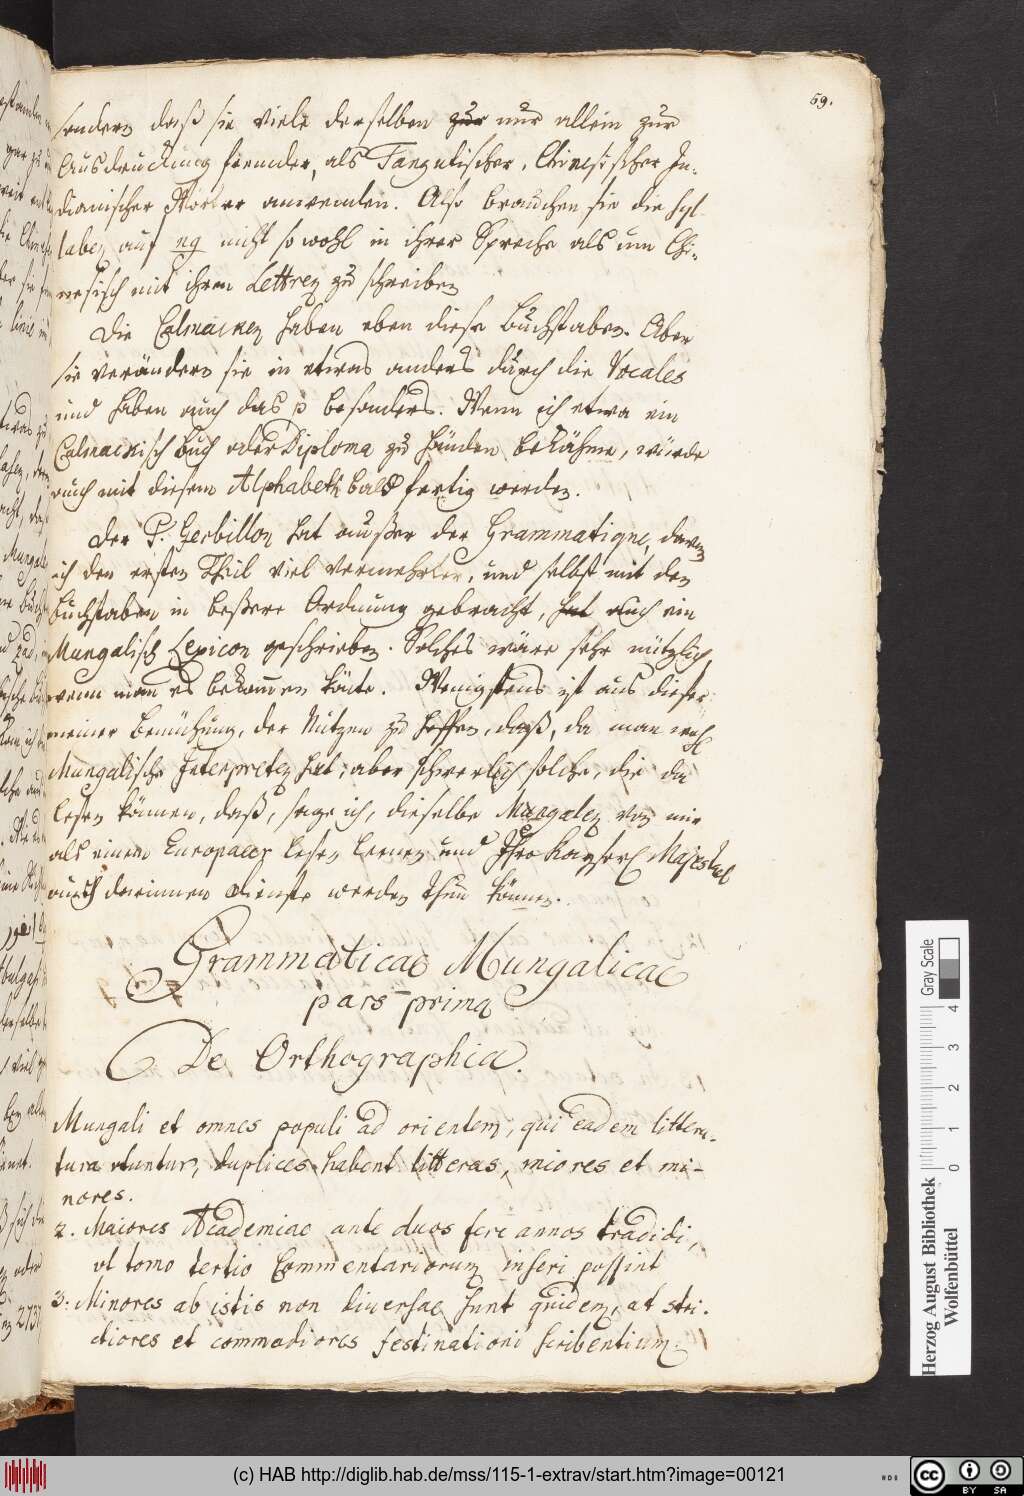 59.
sondern daß sie viele derselben zur nur allein zur
Ausdruckung fremder, als Tangutischer, Chinesischer In-
dianischer Wörter anwenden. Also brauchen sie die Syl-
laben auf ng nicht so wohl in ihrer Sprache als um Chi-
nesisch mit ihren Lettren zu schreiben
Die Calmacken haben eben diese Buchstaben. Aber
sie verändern sie in etwas anders durch die Vocales
und haben auch das p besonders. Wenn ich etwa ein
Calmackisch Buch oder Diploma zu Händen bekähme, würde
auch mit diesem Alphabeth bald fertig werden.
Der P. Gerbillon hat außer der Grammatique, davon
ich den ersten Theil viel vermehrter, und selbst mit den
Buchstaben in beßere Ordnung gebracht, hat auch ein
Mungalisch Lexicon geschrieben. Solches wäre sehr nützlich
wenn man es bekommen könte. Wenigstens ist aus dieser
meiner Bemühung, der Nutzen zu hoffen, daß, da man
Mungalische Interpreten hat, aber schwerlich solche, die da
lesen können, daß, sage ich, dieselbe Mungalen von mir
als einem Europaeer lesen lernen und Ihro Kayserl. Majestät
auch darinnen Dienste werden thun können.
Grammaticae Mungalicae
pars prima
De Orthographia.
Mungali et omnes populi ad orientem, qui eadem littera-
tura vtuntur, duplices habent litteras, maiores et mi-
nores.
2. Maiores Academiae ante duos fere annos tradidi,
vt tomo tertio Commentariorum inseri possint
3. Minores ab istis non diuersae sunt quidem, at stri-
ctiores et commodiores festinationi scribentium.
Herzog August Bibliothek
Wolfenbüttel
Gray Scale
0 1 2 3 4
(c) HAB http://diglib.hab.de/mss/115-1-extrav/start.htm?image=00121
cc BY SA